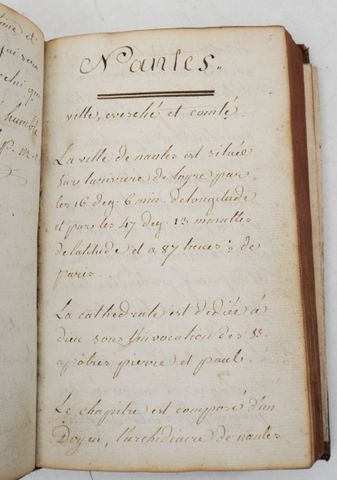 time et
qui sera
celui qu
humble
Nantes.
ville, evesché et comté.
La ville de nantes est située
sur la riviere de loyre par
les 16 deg. 6 min. de longitude
et par les 47 deg. 13 minuttes
de latitude et a 87 lieues ½ de
paris.
La cathedrale est dediée à
dieu sous l'invocation des SS.
apôtres pierre et paul.
Le chapitre est composé d'un
Doyen, l'archidiacre de nantes